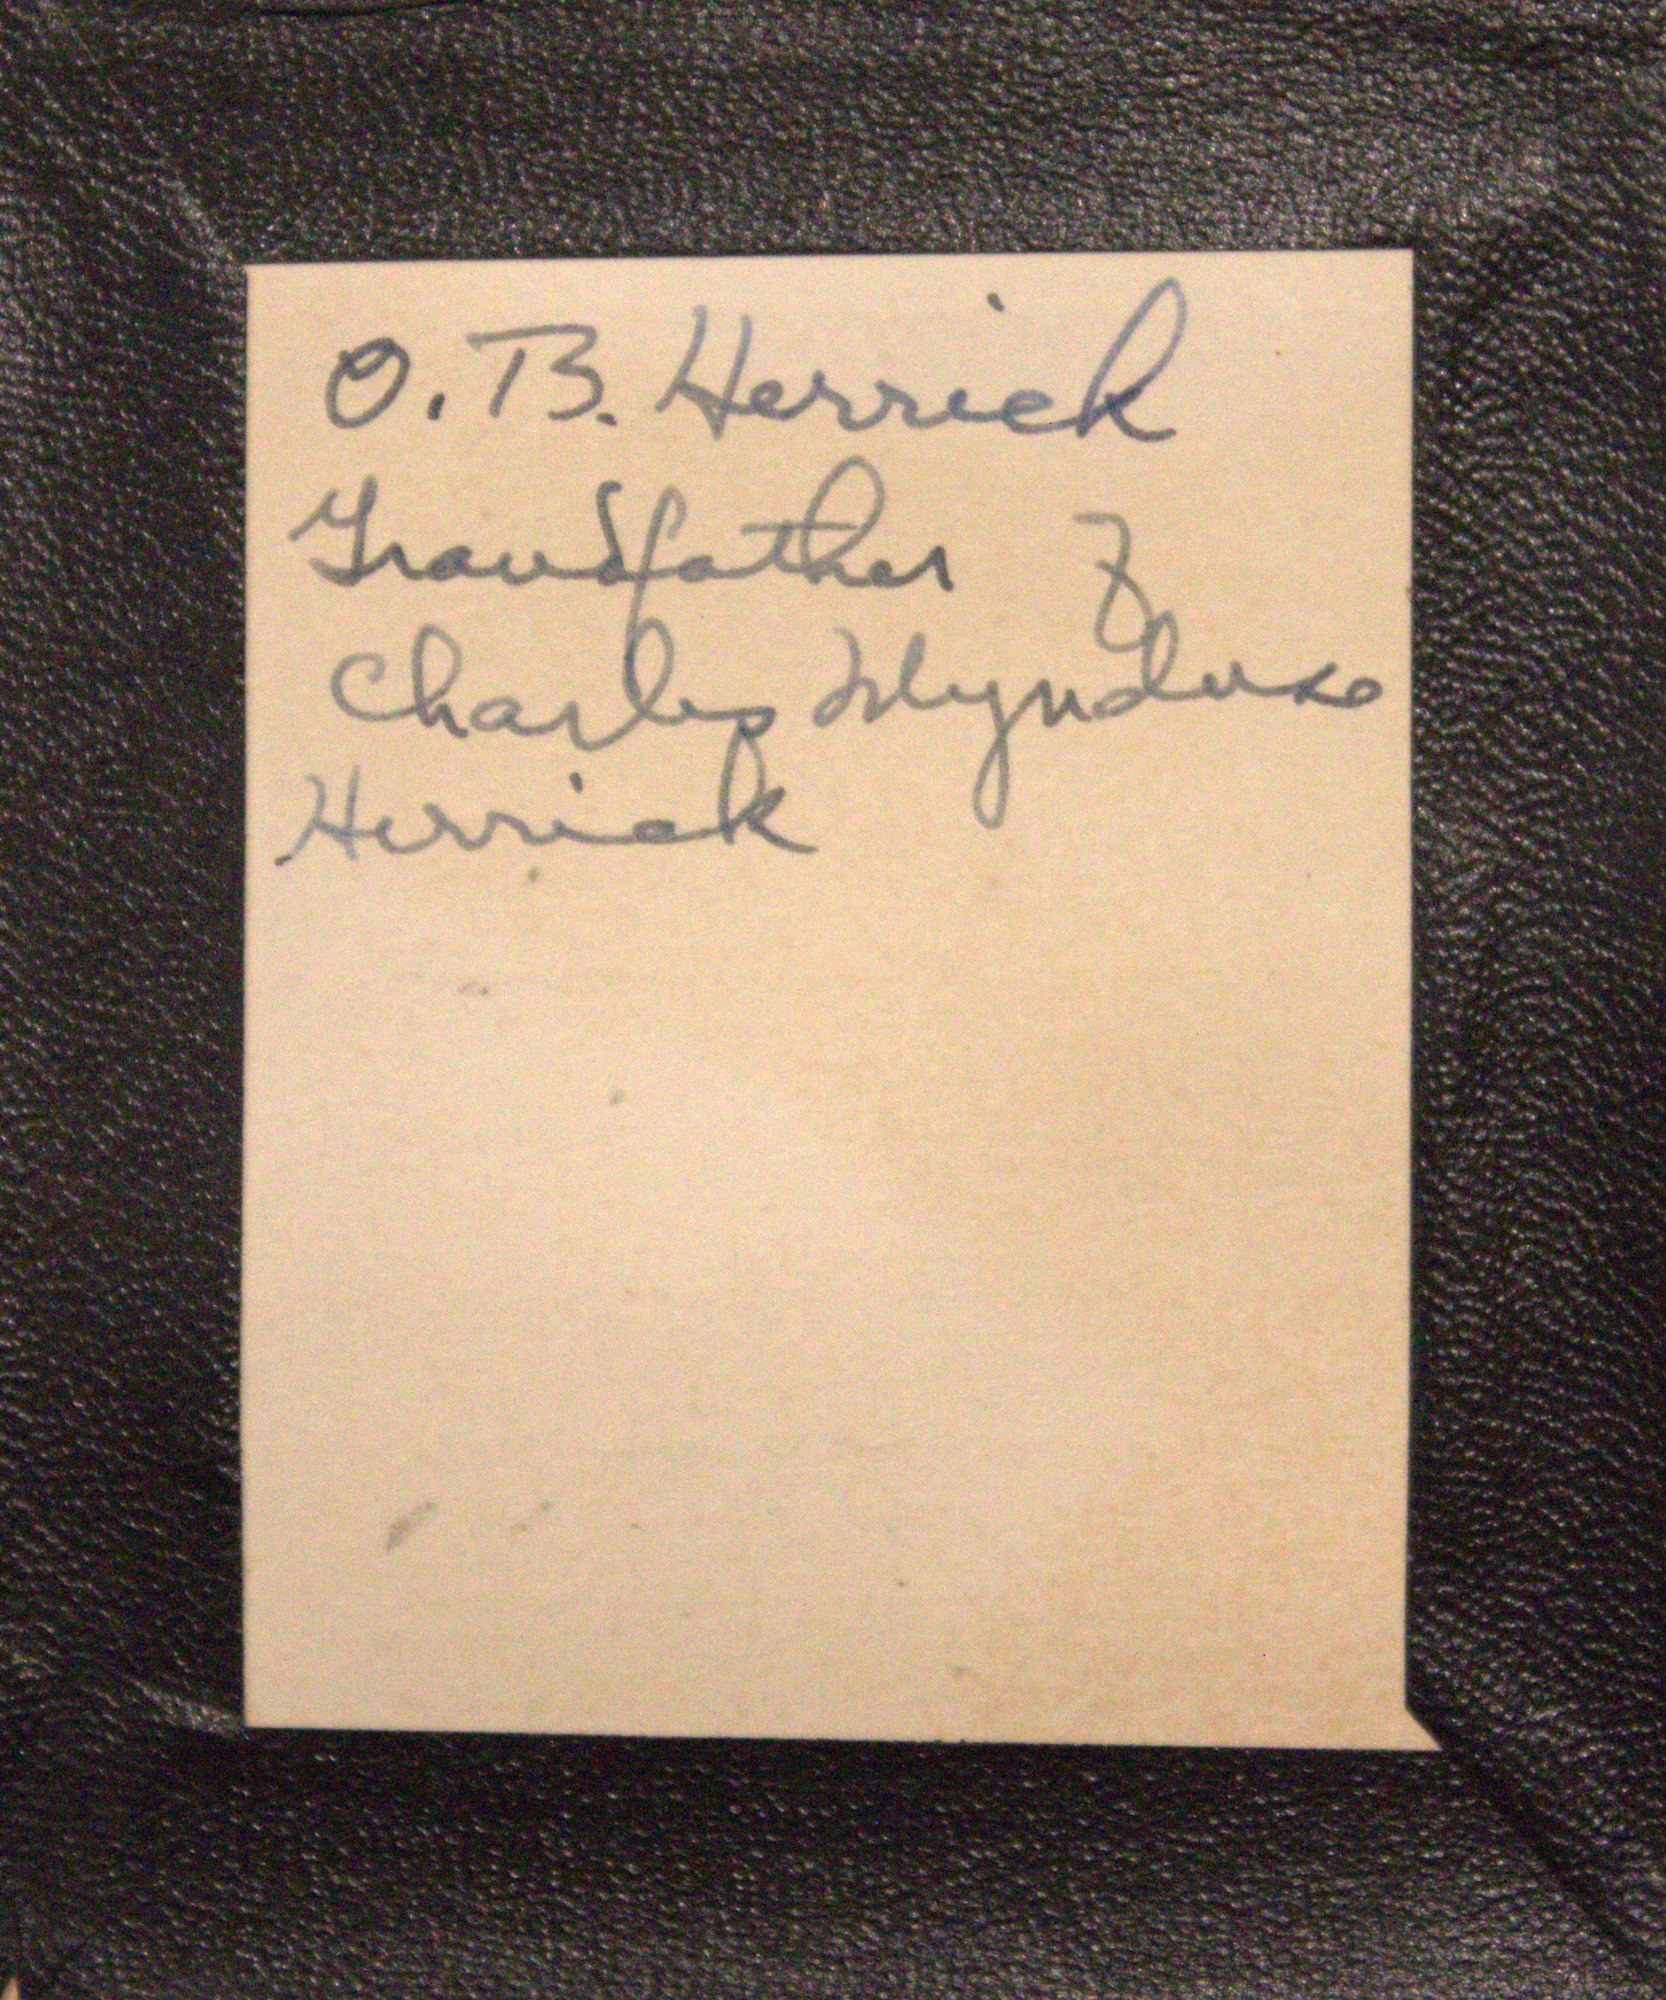 O. B. Herrick
Grandfather of
Charles
Herrick